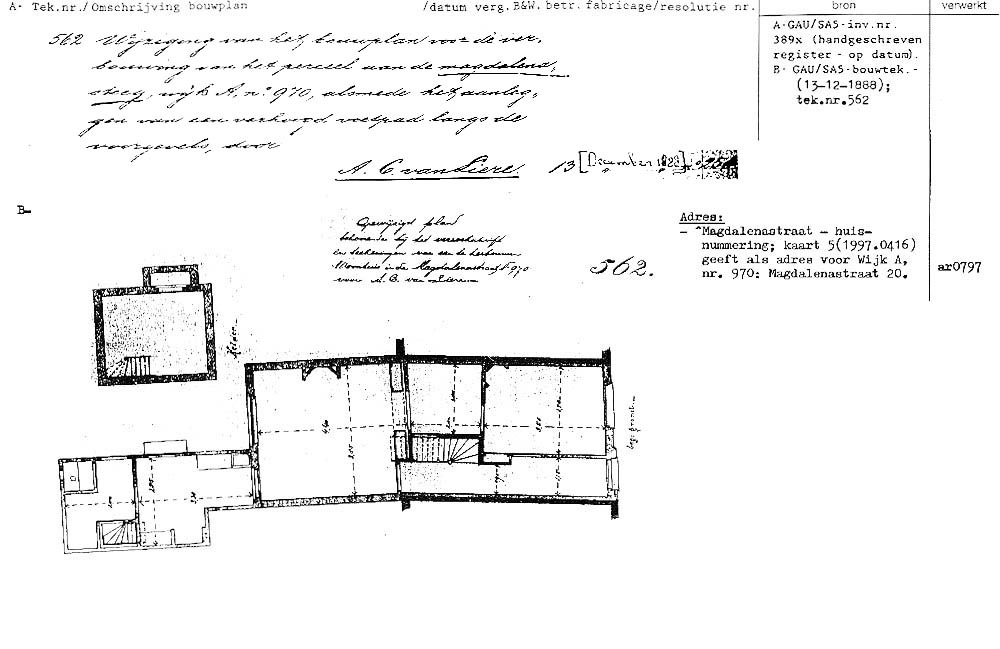 A· Tek.nr./Omschrijving bouwplan /datum verg.B&W. betr. fabricage/resolutie nr. bron verwerkt
562 Wijziging van het bouwplan voor de ver-
bouwing van het perceel aan de magdalena,
steeg, wijk A, nº 970, alsmede het aanleg,
gen van een verhoogd voetpad langs de
voorgevels, door
A. C. van Liere. 13 [December 1888]
A·GAU/SAS·inv.nr.
389x (handgeschreven
register - op datum).
B· GAU/SAS·bouwtek.-
(13-12-1888);
tek.nr.562
B-
Gewijzigd plan
behoorende bij het
en teekeningen van een te
Woonhuis in de Magdalenastraat 970
voor A. C. van Liere
562.
Adres:
- ^Magdalenastraat - huis-
nummering; kaart 5(1997.0416)
geeft als adres voor Wijk A,
nr. 970: Magdalenastraat 20.
ar0797
Kelder